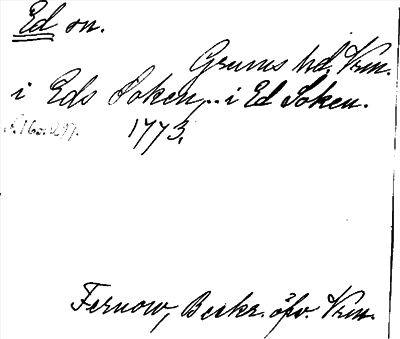 Ed sn.
Grums hd, Vrm.
i Eds Soken, .. i Ed Soken.
s. 160, 297. 1773.
Fernow, Beskr. öfv. Vrm.